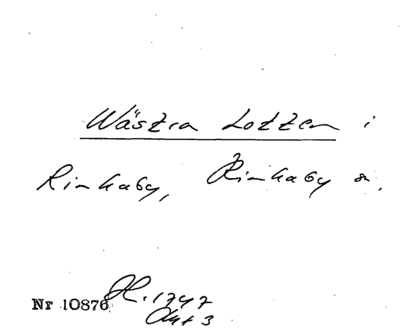 Wästra Lotten i
Rinkaby, Rinkaby sn.
Nr 10876 Hl. 1747
Akt 3